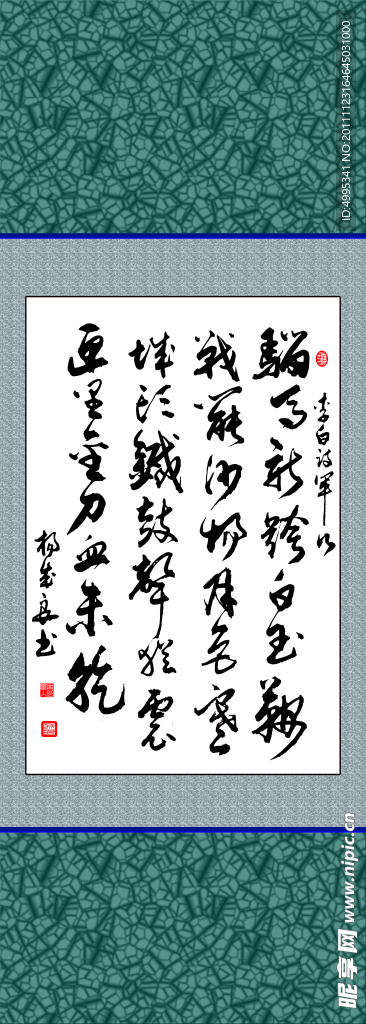 李白诗军行
騮马新跨白玉鞍
戰罷沙場月色寒
城头鐵鼓聲猶震
匣里金刀血未乾
ID:4995341 NO:20111123164645031000
昵享网 www.nipic.cn